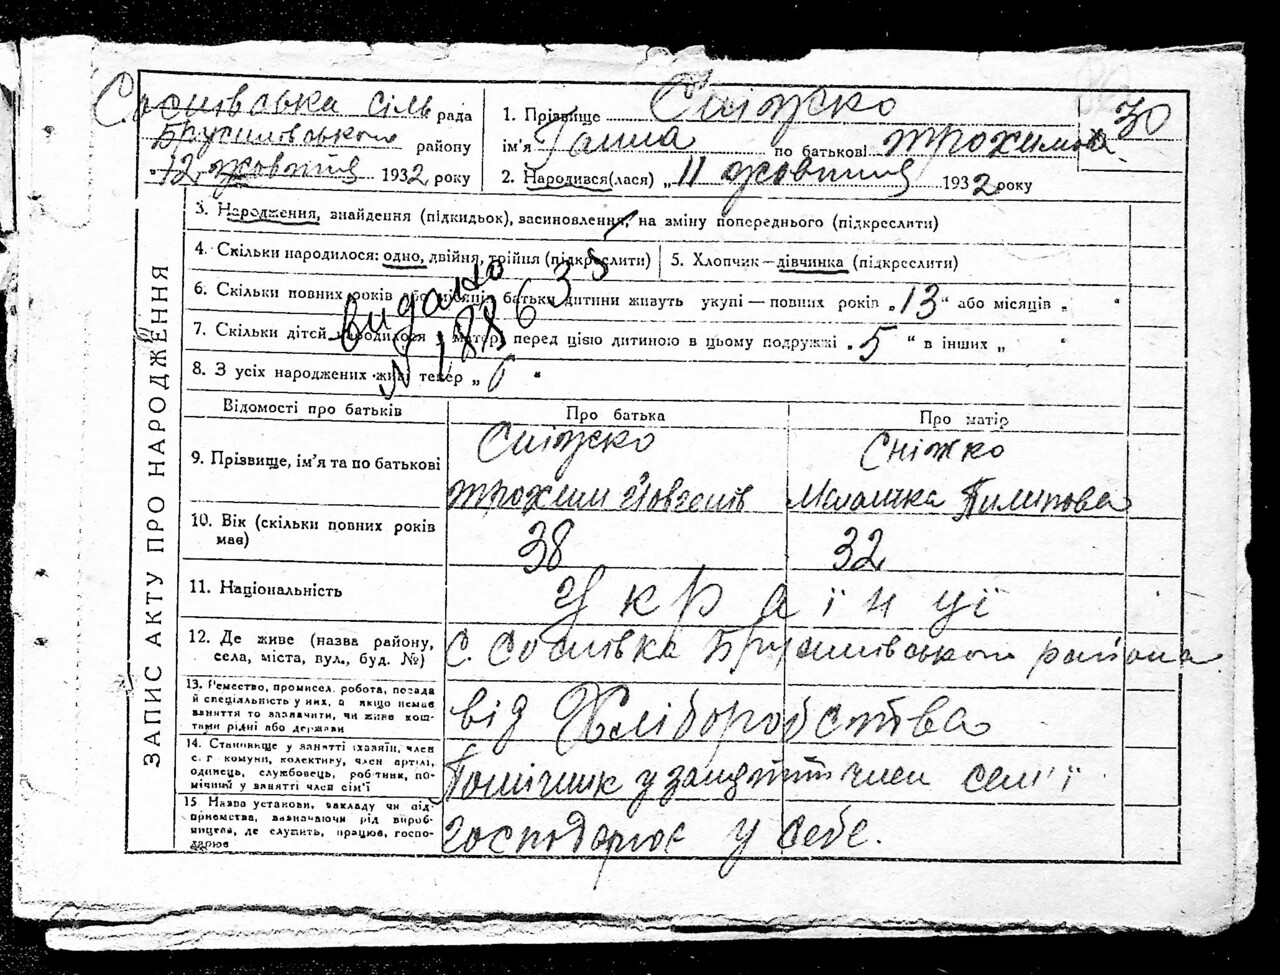 Соснівська сіль рада
Брусилівського району
"12" жовтня 1932 року
30
1. Прізвище Сніжко
ім'я Ганна по батькові Трохимова
2. Народився(лася) „11 жовтня 1932 року
ЗАПИС АКТУ ПРО НАРОДЖЕННЯ
3. Народження, знайдення (підкидьок), васиновлення, на зміну попереднього (підкреслити)
4. Скільки народилося: одно, двійня, трійня (підкреслити) 5. Хлопчик—дівчинка (підкреслити)
6. Скільки повних років або місяців батьки дитини живуть укупі — повних років „13" або місяців „ "
7. Скільки дітей народилося у матері перед цією дитиною в цьому подружжі „5" в інших „ "
8. З усіх народжених живі тепер „6"
видано
N 188635
Відомості про батьків Про батька Про матір
9. Прізвище, ім'я та по батькові
Сніжко
Трохим Йовхимів
Сніжко
Малашка Пилипова
10. Вік (скільки повних років
має)
38
32
11. Національність
Українці
12. Де живе (назва району,
села, міста, вул., буд. №)
с. Соснівка Брусилівського района
13. Ремество, промисел, робота, посада
й спеціяльність у них, а якщо немає
заняття то зазначити, чи живе кош-
тами рідні або держави
від Хліборобства
14. Становище у занятті (хазяїн, член
с. г комуни, колективу, член артілі,
одинець, службовець, робітник, по-
мічний у занятті член сім'ї
Помічник у занятті член сем'ї
15. Назва установи, закладу чи під-
приємства, визначаючи рід вироб-
ництва, де служить, працює, госпо-
дарює
господарює у себе.